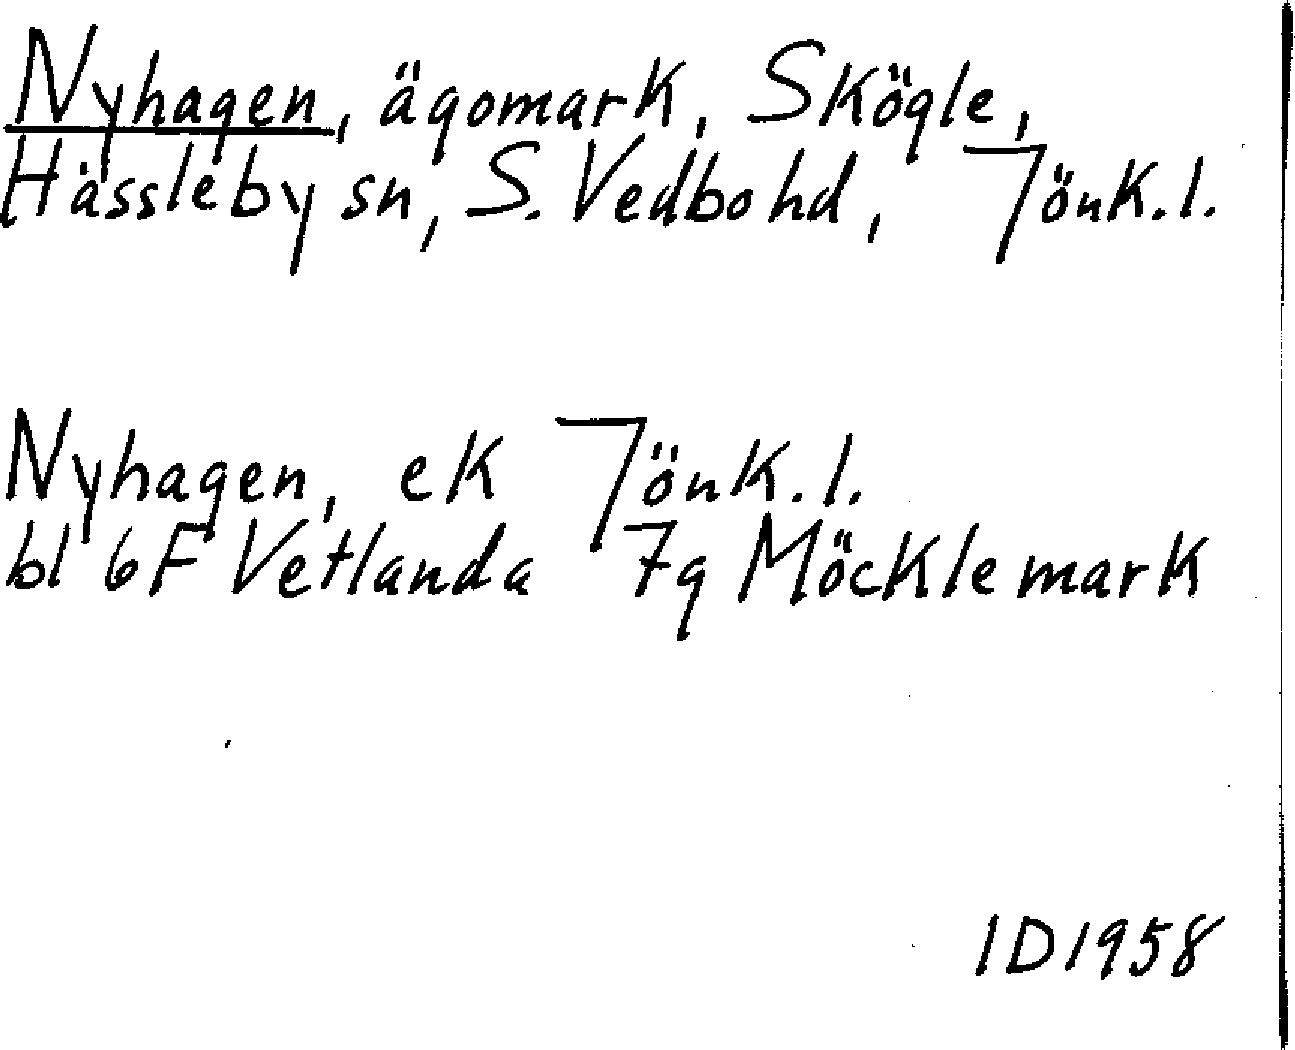 Nyhagen, ägomark, Skögle,
Hässleby sn, S. Vedbo hd, Jönk.l.
Nyhagen, ek Jönk.l.
bl 6F Vetlanda 7g Möcklemark
ID1958